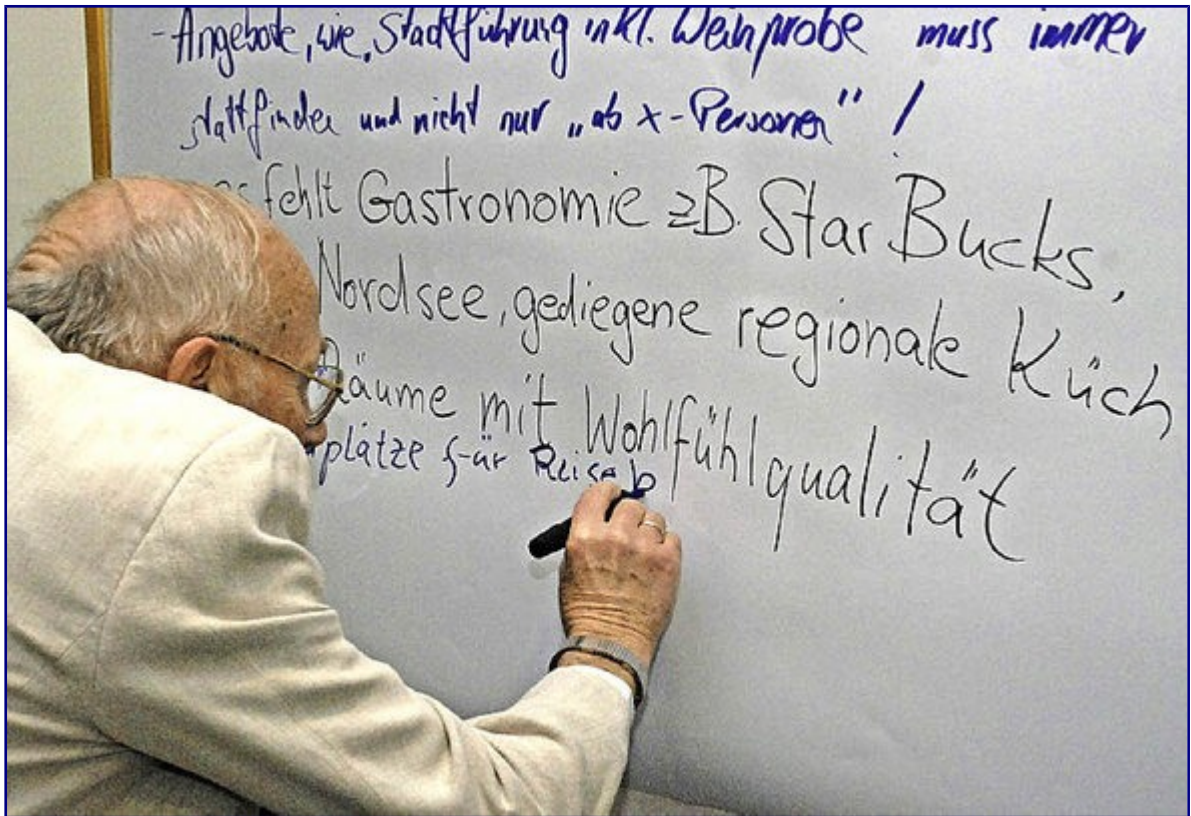 - Angebote, wie, Stadtführung inkl. Weinprobe muss immer
stattfinden und nicht nur „ab x-Personen" !
es fehlt Gastronomie zB. StarBucks,
Nordsee, gediegene regionale Küch
Räume mit Wohlfühlqualität
plätze für Reiseb